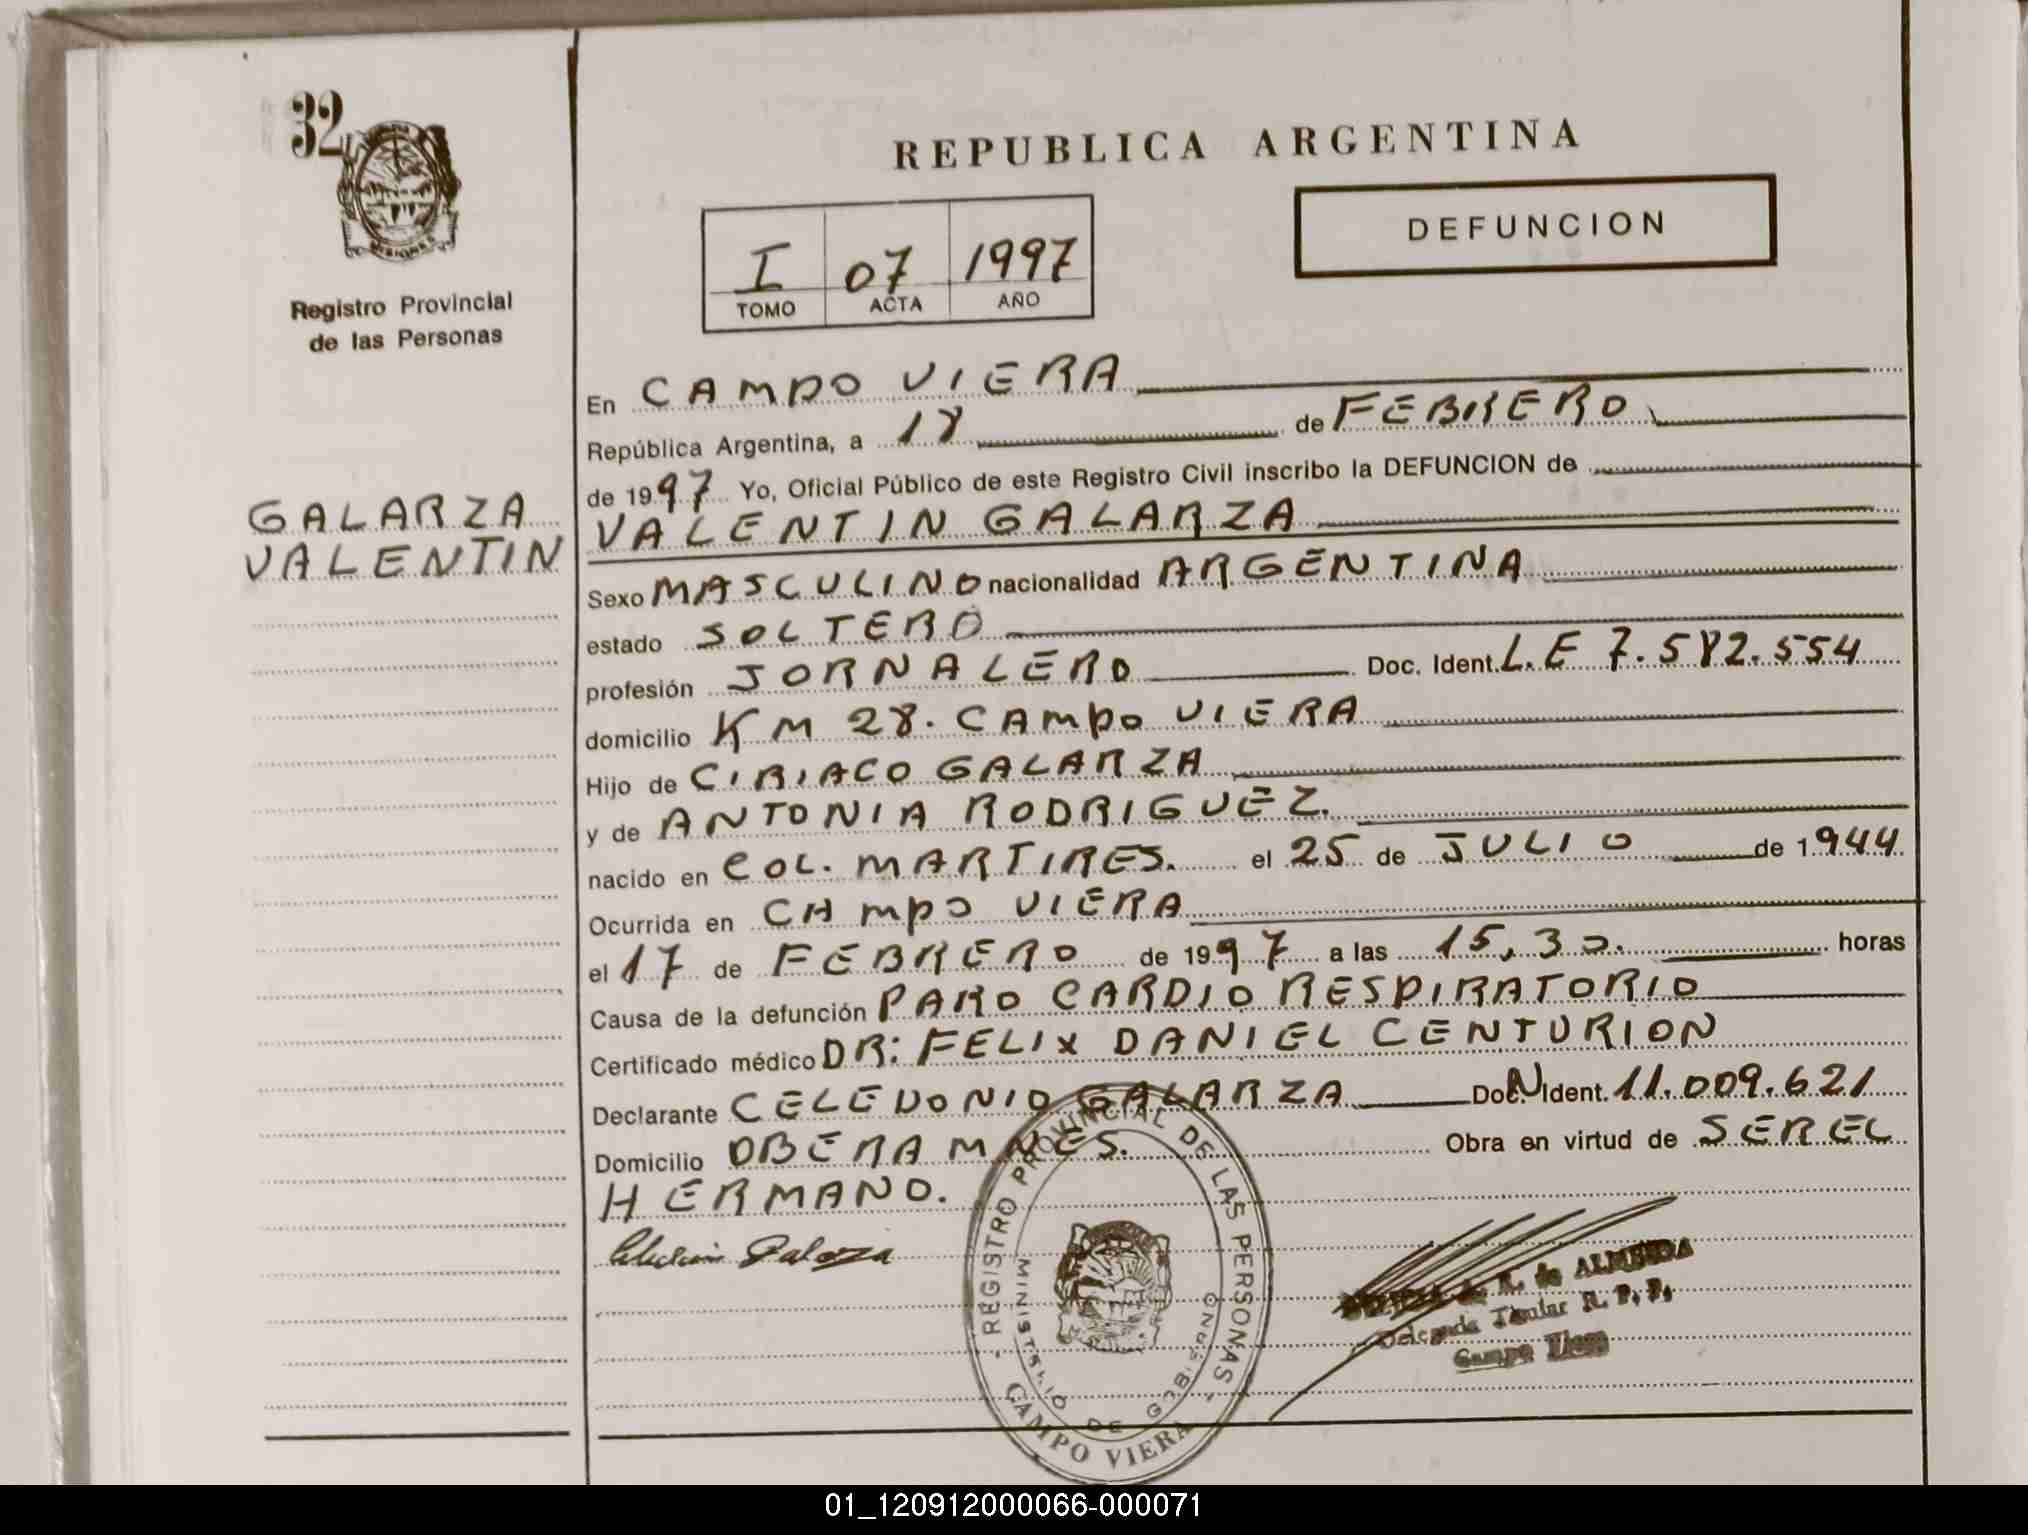 32
Registro Provincial
de las Personas
GALARZA
VALENTIN
REPUBLICA ARGENTINA
I 07 1997
TOMO ACTA AÑO
DEFUNCION
En CAMPO VIERA
República Argentina, a 18 de FEBRERO
de 1997 Yo, Oficial Público de este Registro Civil inscribo la DEFUNCION de
VALENTIN GALARZA
Sexo MASCULINO nacionalidad ARGENTINA
estado SOLTERO
profesión JORNALERO Doc. Ident. L.E 7.582.554
domicilio KM 28. CAMPO VIERA
Hijo de CIRIACO GALARZA
y de ANTONIA RODRIGUEZ.
nacido en COL. MARTIRES. el 25 de JULIO de 1944
Ocurrida en CAMPO VIERA
el 17 de FEBRERO de 1997 a las 15,30. horas
Causa de la defunción PARO CARDIO RESPIRATORIO
Certificado médico DR: FELIX DANIEL CENTURION
Declarante CELEDONIO GALARZA Doc. N Ident. 11.009.621
Domicilio OBERA MNES. Obra en virtud de SEREL
HERMANO.
Galarza
REGISTRO PROVINCIAL DE LAS PERSONAS
MINISTERIO DE GOBIERNO
CAMPO VIERA
de ALMEIDA
Delegada Titular R. P. P.
Campo Viera
01_120912000066-000071